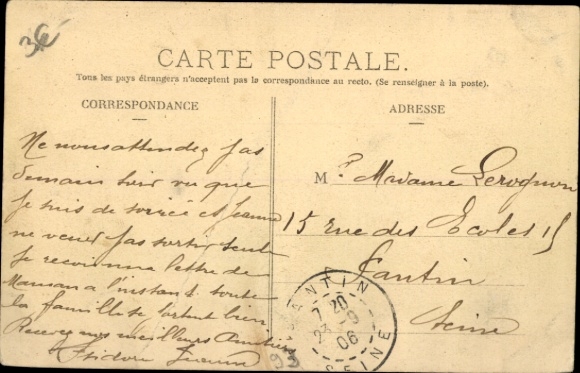 3€
CARTE POSTALE.
Tous les pays étrangers n'acceptent pas la correspondance au recto. (Se renseigner à la poste).
CORRESPONDANCE
ADRESSE
Ne nous attendez pas
demain soir vu que
je suis de soirée et Jeanne
ne veut pas sortir seule
Je recois une lettre de
Maman a l'instant toute
la famille se portent bien
Recevez mes meilleurs Amitiés
Isidore Jeanne
M. Madame Lerognon
15 rue des Ecoles 15
Pantin
Seine
PANTIN
7 20
23
06
SEINE